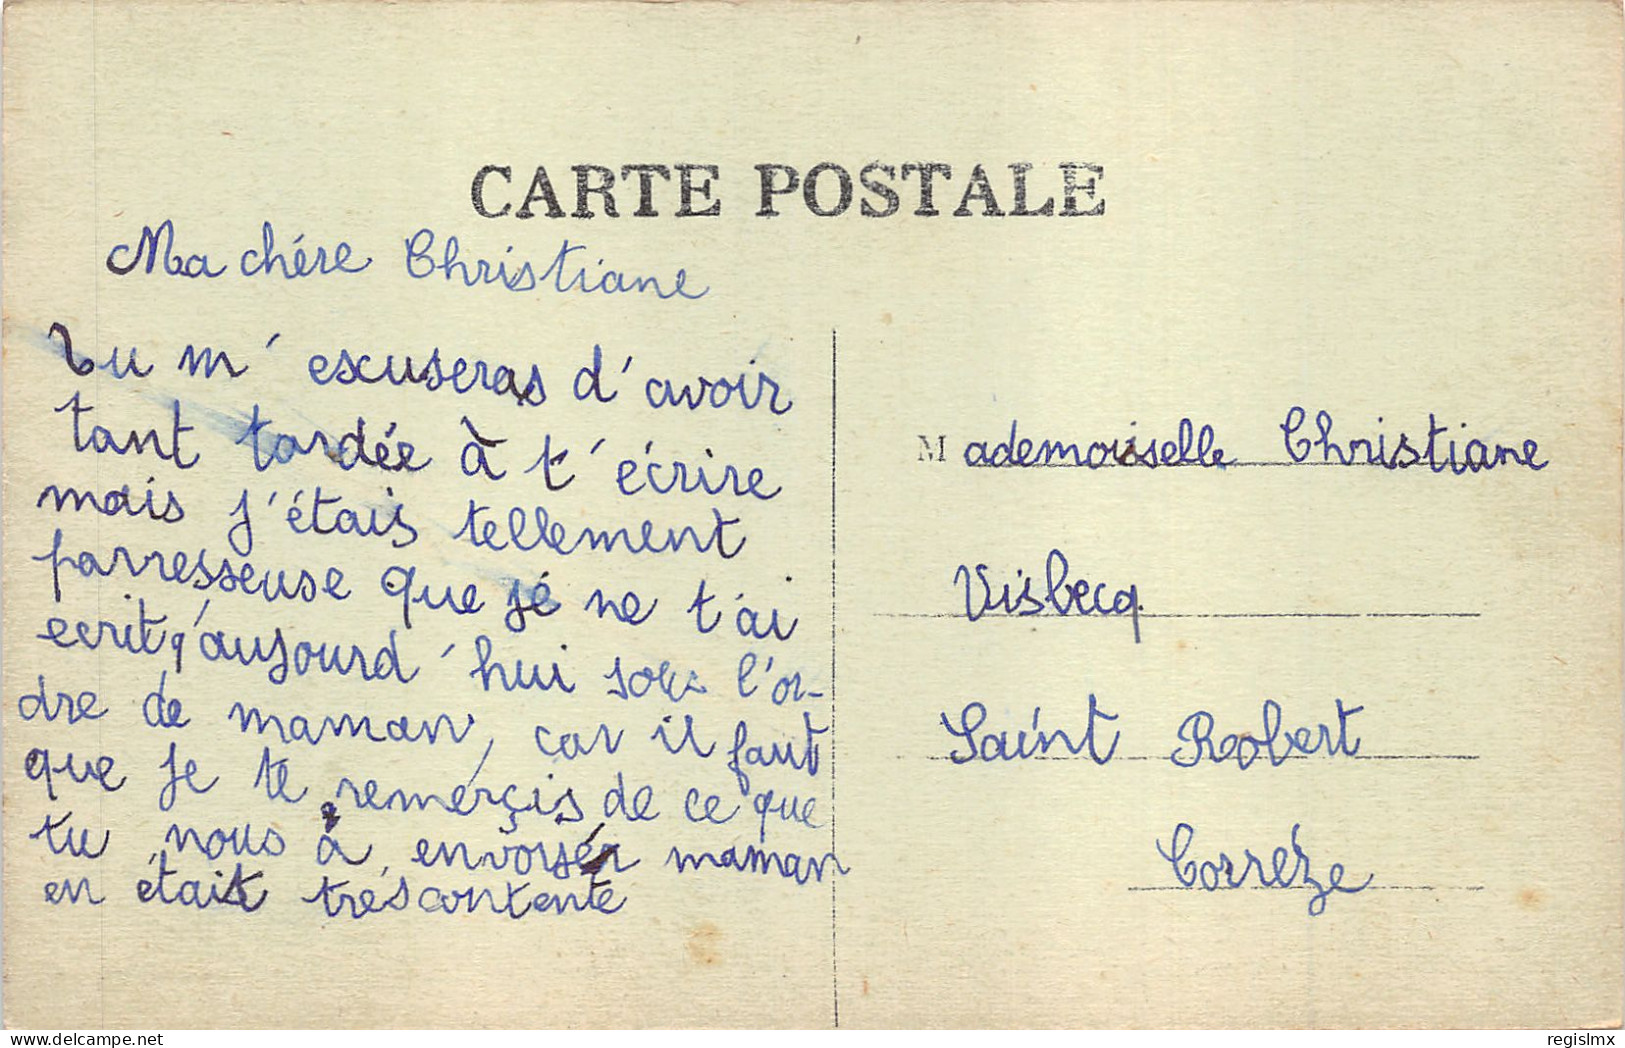 CARTE POSTALE
Ma chére Christiane
Tu m' excuseras d'avoir
tant tardée à t'écrire
mais j'étais tellement
parresseuse que je ne t'ai
ecrit q'aujourd'hui sous l'or-
dre de maman, car il faut
que je te remerçis de ce que
tu nous à envoyér maman
en était trés contente
Mademoiselle Christiane
Visbecq
Saint Robert
Corrèze
delcampe.net
regislmx